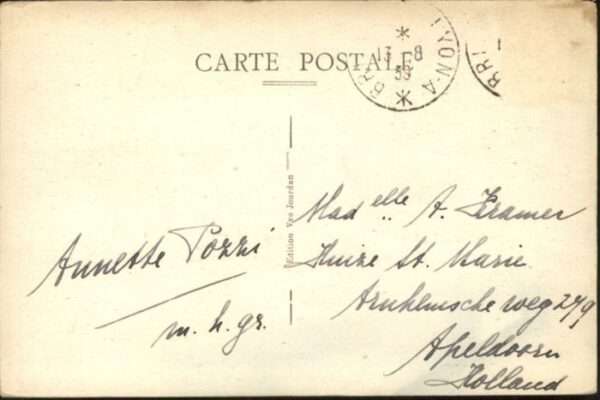 CARTE POSTALE
13 8
39
Edition Vve Jourdan
Annette Pozzi
m. h. gr.
Mad elle A. Kramer
Huize St. Marie
Arnhemsche weg 279
Apeldoorn
Holland